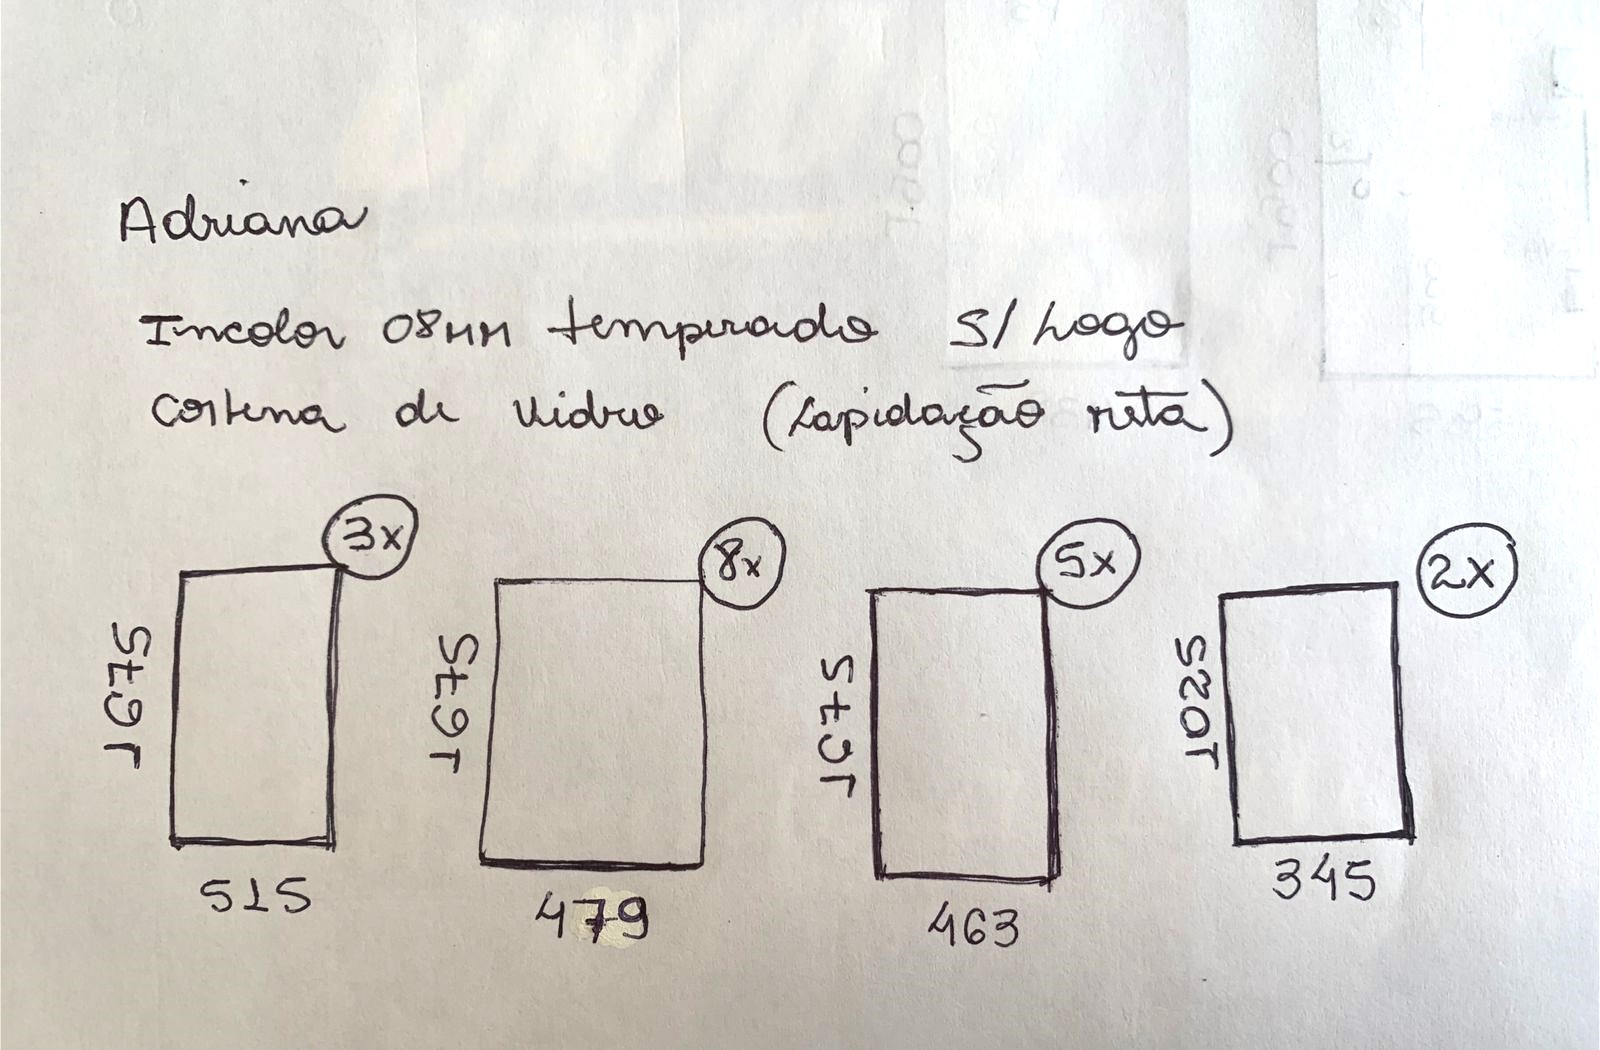 Adriana
Incolor 08MM temperado S/ Logo
Cortina de vidro (Lapidação reta)
3x
8x
5x
2x
1675
1675
1675
1025
515
479
463
345